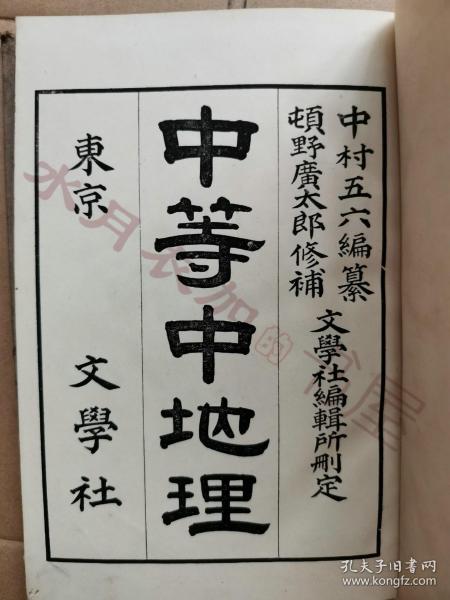 中村五六編纂
頓野廣太郎修補
文學社編輯所刪定
中等中地理
東京 文學社
水月衣加的书屋
孔夫子旧书网
www.kongfz.com